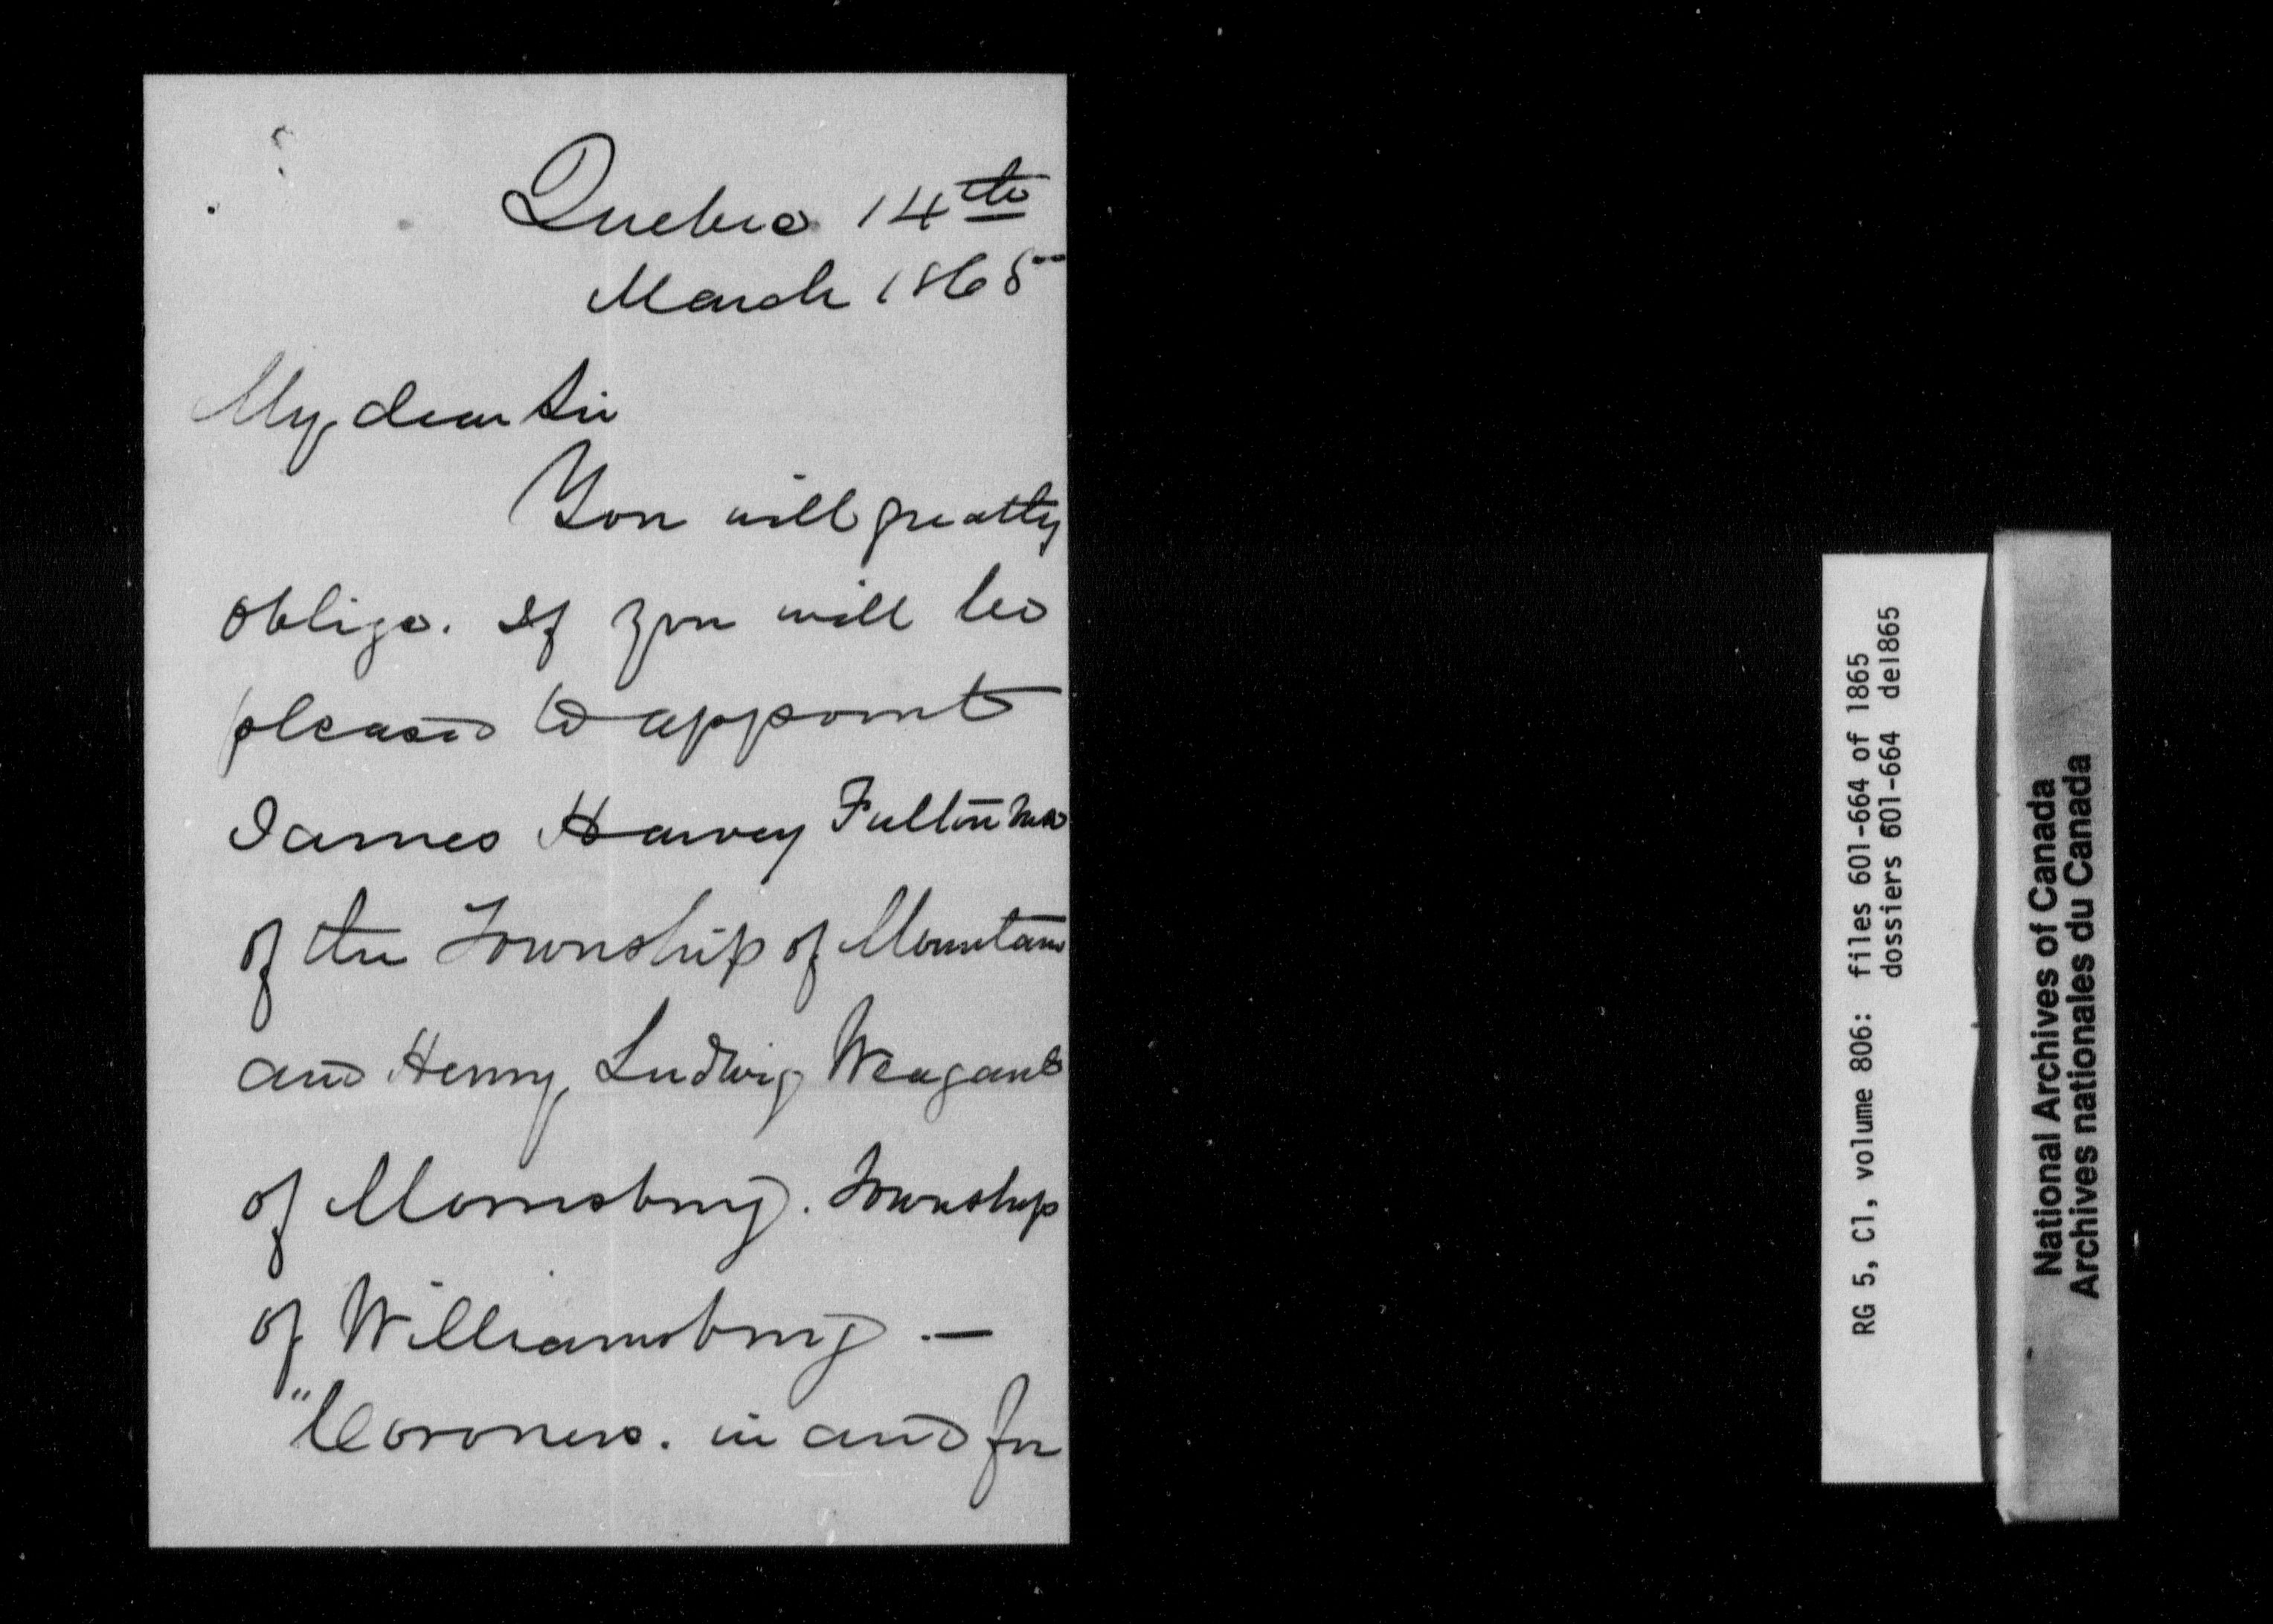 Quebec 14th
March 1865
My dear Sir
You will greatly
oblige. If you will be
pleased to appoint
James Harvey Fulton
of the Township of Mountain
and Henry Ludwig Weagant
of Morrisburg. Township
of Williamsburg .—
"Coroners. in and for
RG 5, C1, volume 806: files 601-664 of 1865
dossiers 601-664 de1865
National Archives of Canada
Archives nationales du Canada